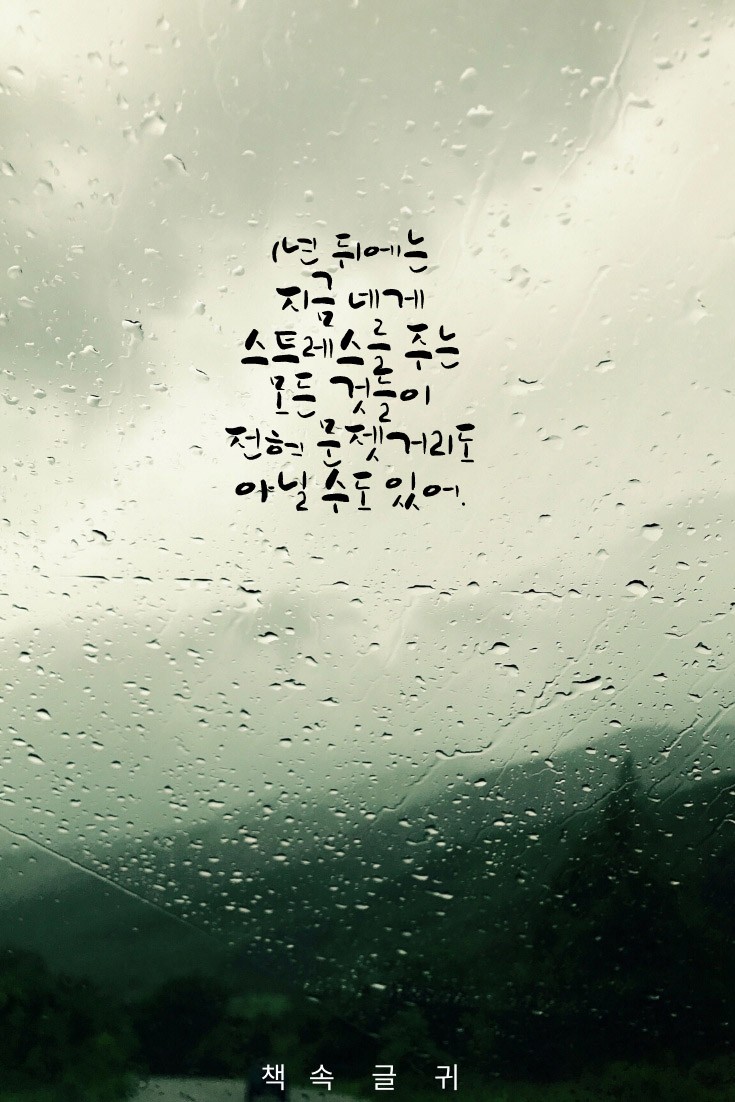 1년 뒤에는
지금 네게
스트레스를 주는
모든 것들이
전혀 문젯거리도
아닐 수도 있어.
책속 글귀